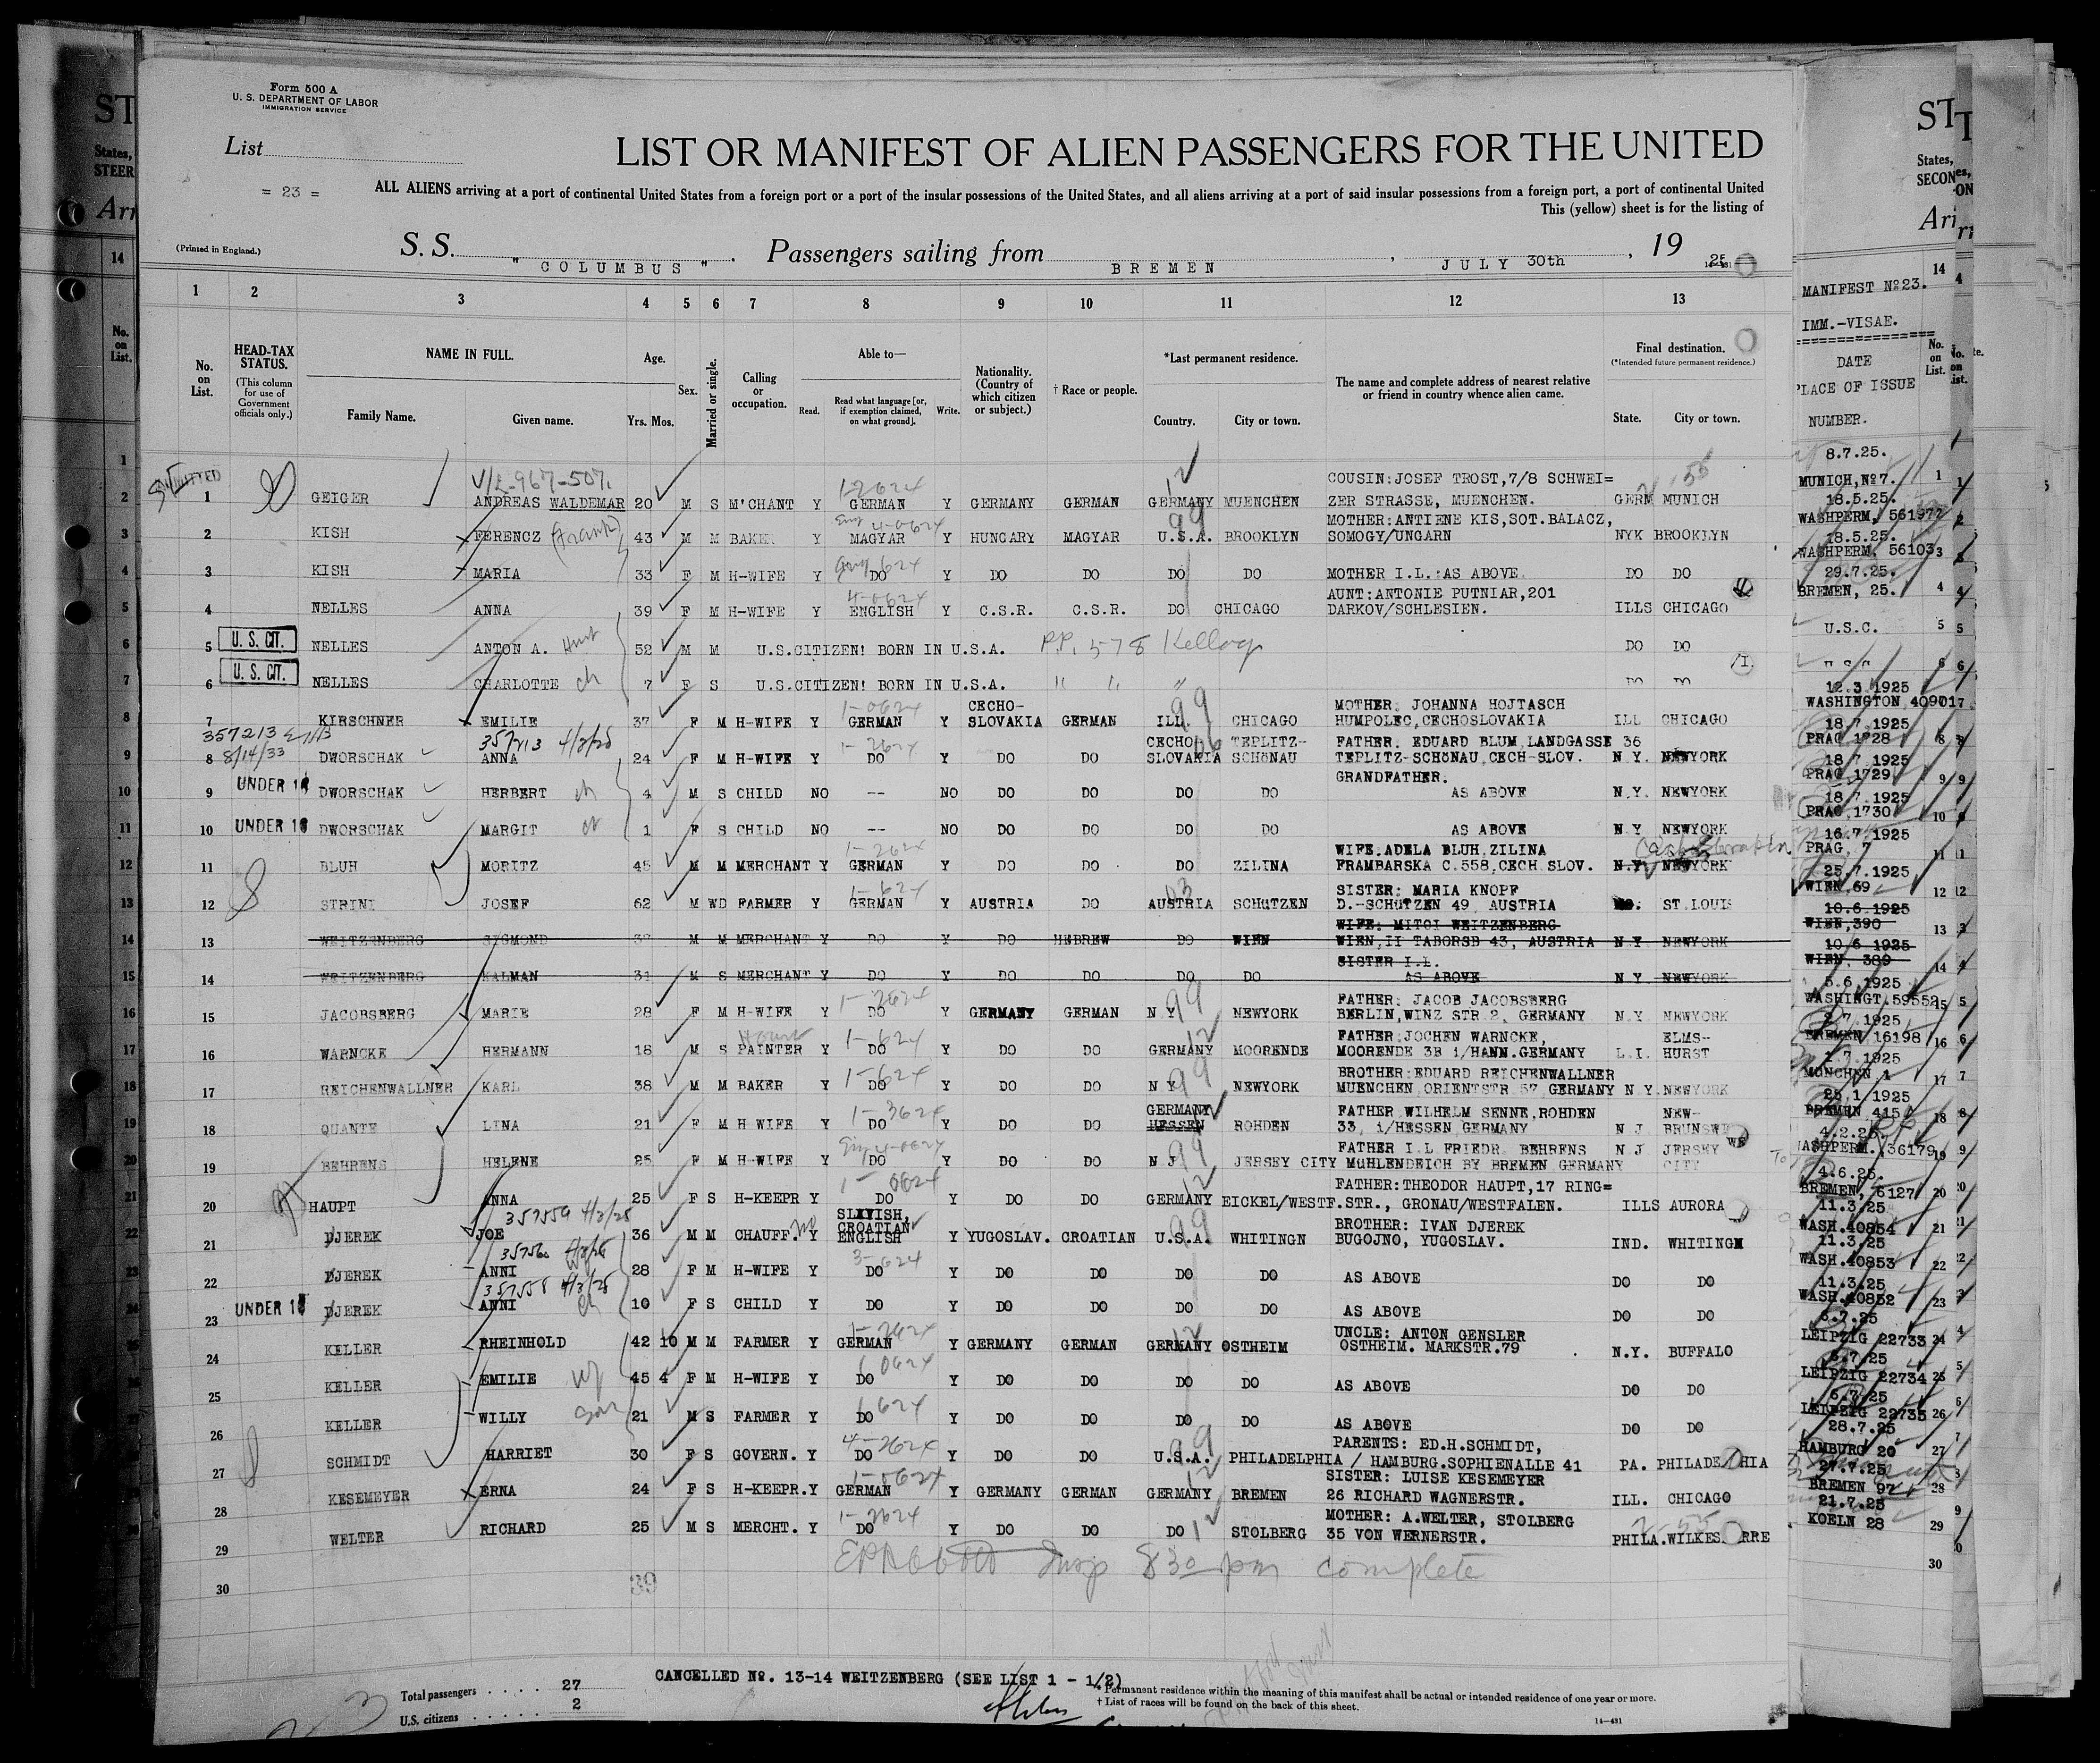 Form 500 A
U. S. DEPARTMENT OF LABOR
IMMIGRATION SERVICE
List
LIST OR MANIFEST OF ALIEN PASSENGERS FOR THE UNITED
= 23 =
ALL ALIENS arriving at a port of continental United States from a foreign port or a port of the insular possessions of the United States, and all aliens arriving at a port of said insular possessions from a foreign port, a port of continental United
This (yellow) sheet is for the listing of
(Printed in England.)
S. S. " COLUMBUS ". Passengers sailing from BREMEN, JULY 30th, 19 25
1 2 3 4 5 6 7 8 9 10 11 12 13
No. on List.
HEAD-TAX STATUS.
(This column for use of Government officials only.)
NAME IN FULL.
Family Name. Given name.
Age.
Yrs. Mos.
Sex.
Married or single.
Calling or occupation.
Able to—
Read.
Read what language [or, if exemption claimed, on what ground].
Write.
Nationality. (Country of which citizen or subject.)
† Race or people.
*Last permanent residence.
Country. City or town.
The name and complete address of nearest relative or friend in country whence alien came.
Final destination.
(*Intended future permanent residence.)
State. City or town.
MANIFEST Nº23.
IMM.-VISAE.
DATE
PLACE OF ISSUE
NUMBER.
COUSIN:JOSEF TROST,7/8 SCHWEI=
1 GEIGER ANDREAS WALDEMAR 20 M S M'CHANT Y GERMAN Y GERMANY GERMAN GERMANY MUENCHEN ZER STRASSE, MUENCHEN. GERM MUNICH
8.7.25. MUNICH,Nº7.
MOTHER:ANTIENE KIS,SOT.BALACZ,
2 KISH FERENCZ (Frank) 43 M M BAKER Y MAGYAR Y HUNGARY MAGYAR U.S.A. BROOKLYN SOMOGY/UNGARN NYK BROOKLYN
18.5.25. WASHPERM, 56197
3 KISH MARIA 33 F M H-WIFE Y DO Y DO DO DO DO MOTHER I.L.:AS ABOVE DO DO
18.5.25. WASHPERM, 56103
AUNT:ANTONIE PUTNIAR,201
4 NELLES ANNA 39 F M H-WIFE Y ENGLISH Y C.S.R. C.S.R. DO CHICAGO DARKOV/SCHLESIEN. ILLS CHICAGO
29.7.25. BREMEN, 25.
5 U. S. CIT. NELLES ANTON A. 52 M M U.S.CITIZEN! BORN IN U.S.A. P.P. 578 Kellogg DO DO
U.S.C.
6 U. S. CIT. NELLES CHARLOTTE ch 7 F S U.S.CITIZEN! BORN IN U.S.A. " " " DO DO
MOTHER. JOHANNA HOJTASCH
7 KIRSCHNER EMILIE 37 F M H-WIFE Y GERMAN Y CECHO-SLOVAKIA GERMAN ILL. CHICAGO HUMPOLEC,CECHOSLOVAKIA ILL CHICAGO
12.3.1925 WASHINGTON 40901
357213
8/14/33
FATHER. EDUARD BLUM LANDGASSE 36
8 DWORSCHAK ANNA 24 F M H-WIFE Y DO Y DO DO CECHO SLOVAKIA TEPLITZ-SCHöNAU TEPLITZ-SCHöNAU,CECH-SLOV. N.Y. NEWYORK
18.7.1925 PRAG 1728
GRANDFATHER.
9 UNDER 16 DWORSCHAK HERBERT ch 4 M S CHILD NO -- NO DO DO DO DO AS ABOVE N.Y. NEWYORK
18.7.1925 PRAG 1729
10 UNDER 16 DWORSCHAK MARGIT 1 F S CHILD NO -- NO DO DO DO DO AS ABOVE N.Y NEWYORK
18.7.1925 PRAG,1730
WIFE.ADELA BLUH,ZILINA
11 BLUH MORITZ 45 M M MERCHANT Y GERMAN Y DO DO DO ZILINA FRAMBARSKA C.558,CECH.SLOV. N.Y. NEWYORK
16.7.1925 PRAG, 7
SISTER: MARIA KNOPF
12 STRINI JOSEF 62 M WD FARMER Y GERMAN Y AUSTRIA DO AUSTRIA SCHüTZEN D.-SCHüTZEN 49 AUSTRIA ST.LOUIS
25.7.1925 WIEN 69
WIFE: MITGI WEITZENBERG
13 WEITZENBERG SYGMOND M M MERCHANT Y DO Y DO HEBREW DO WIEN WIEN,II TABORSB 43, AUSTRIA N.Y. NEWYORK
10.6.1925 WIEN,390
SISTER I.L.
14 WEITZENBERG KALMAN 31 M S MERCHANT Y DO Y DO DO DO DO AS ABOVE N.Y NEWYORK
10.6 1925 WIEN, 389
FATHER: JACOB JACOBSBERG
15 JACOBSBERG MARIE 28 F M H-WIFE Y DO Y GERMANY GERMAN N Y NEWYORK BERLIN,WINZ STR 2, GERMANY N.Y NEWYORK
5.6 1925 WASHINGT.59552
FATHER:JOCHEN WARNCKE,
16 WARNCKE HERMANN 18 M S PAINTER Y DO Y DO DO GERMANY MOORENDE MOORENDE 3B i/HANN.GERMANY L.I. ELMS-HURST
7 1925 BREMEN 16198
BROTHER:EDUARD REICHENWALLNER
17 REICHENWALLNER KARL 38 M M BAKER Y DO Y DO DO N Y NEWYORK MUENCHEN ORIENTSTR 57 GERMANY N Y.NEWYORK
7.1925 MÜNCHEN 1
FATHER WILHELM SENNE,ROHDEN
18 QUANTE LINA 21 F M H WIFE Y DO Y DO DO GERMANY HESSEN ROHDEN 33, i/HESSEN GERMANY N J. NEW-BRUNSW
25.1/1925 BREMEN 415
FATHER I.L FRIEDR BEHRENS
19 BEHRENS HELENE 25 F M H-WIFE Y DO Y DO DO N J JERSEY CITY MüHLENDEICH BY BREMEN GERMANY N J JERSEY CITY
4.2.25. WASHPERM. 36179
FATHER:THEODOR HAUPT,17 RING=
20 HAUPT ANNA 25 F S H-KEEPR Y DO Y DO DO GERMANY EICKEL/WESTF. STR., GRONAU/WESTFALEN. ILLS AURORA
4.6.25. BREMEN, 6127
357559 4/3/25
BROTHER: IVAN DJEREK
21 DJEREK JOE 36 M M CHAUFF. Y SLIVISH, CROATIAN ENGLISH Y YUGOSLAV. CROATIAN U.S.A. WHITINGN BUGOJNO, YUGOSLAV. IND. WHITING
11.3.25 WASH.40854
22 DJEREK ANNI 28 F M H-WIFE Y DO Y DO DO DO DO AS ABOVE DO DO
11.3.25 WASH.40853
357558 4/3/25
23 UNDER 16 DJEREK ANNI ch 10 F S CHILD Y DO Y DO DO DO DO AS ABOVE DO DO
11.3.25 WASH.40852
UNCLE: ANTON GENSLER
24 KELLER RHEINHOLD 42 10 M M FARMER Y GERMAN Y GERMANY GERMAN GERMANY OSTHEIM OSTHEIM. MARKSTR.79 N.Y. BUFFALO
6.7.25 LEIPZIG 22733
25 KELLER EMILIE wf 45 4 F M H-WIFE Y DO Y DO DO DO DO AS ABOVE DO DO
6.7.25 LEIPZIG 22734
26 KELLER WILLY son 21 M S FARMER Y DO Y DO DO DO DO AS ABOVE DO DO
6.7.25 LEIPZIG 22735
PARENTS: ED.H.SCHMIDT,
27 SCHMIDT HARRIET 30 F S GOVERN. Y DO Y DO DO U.S.A. PHILADELPHIA / HAMBURG.SOPHIENALLE 41 PA. PHILADE HIA
28.7.25 HAMBURG 20
SISTER: LUISE KESEMEYER
28 KESEMEYER ERNA 24 F S H-KEEPR. Y GERMAN Y GERMANY GERMAN GERMANY BREMEN 26 RICHARD WAGNERSTR. ILL. CHICAGO
27.7.25 BREMEN 97
MOTHER: A.WELTER, STOLBERG
29 WELTER RICHARD 25 M S MERCHT. Y DO Y DO DO DO STOLBERG 35 VON WERNERSTR. PHILA.WILKES. RRE
21.7.25 KOELN 28
30
Insp 8 30 pm complete
39
CANCELLED Nº. 13-14 WEITZENBERG (SEE LIST 1 - 1/2)
Total passengers . . . . . 27
U.S. citizens . . . . . . 2
* Permanent residence within the meaning of this manifest shall be actual or intended residence of one year or more.
† List of races will be found on the back of this sheet.
14—431